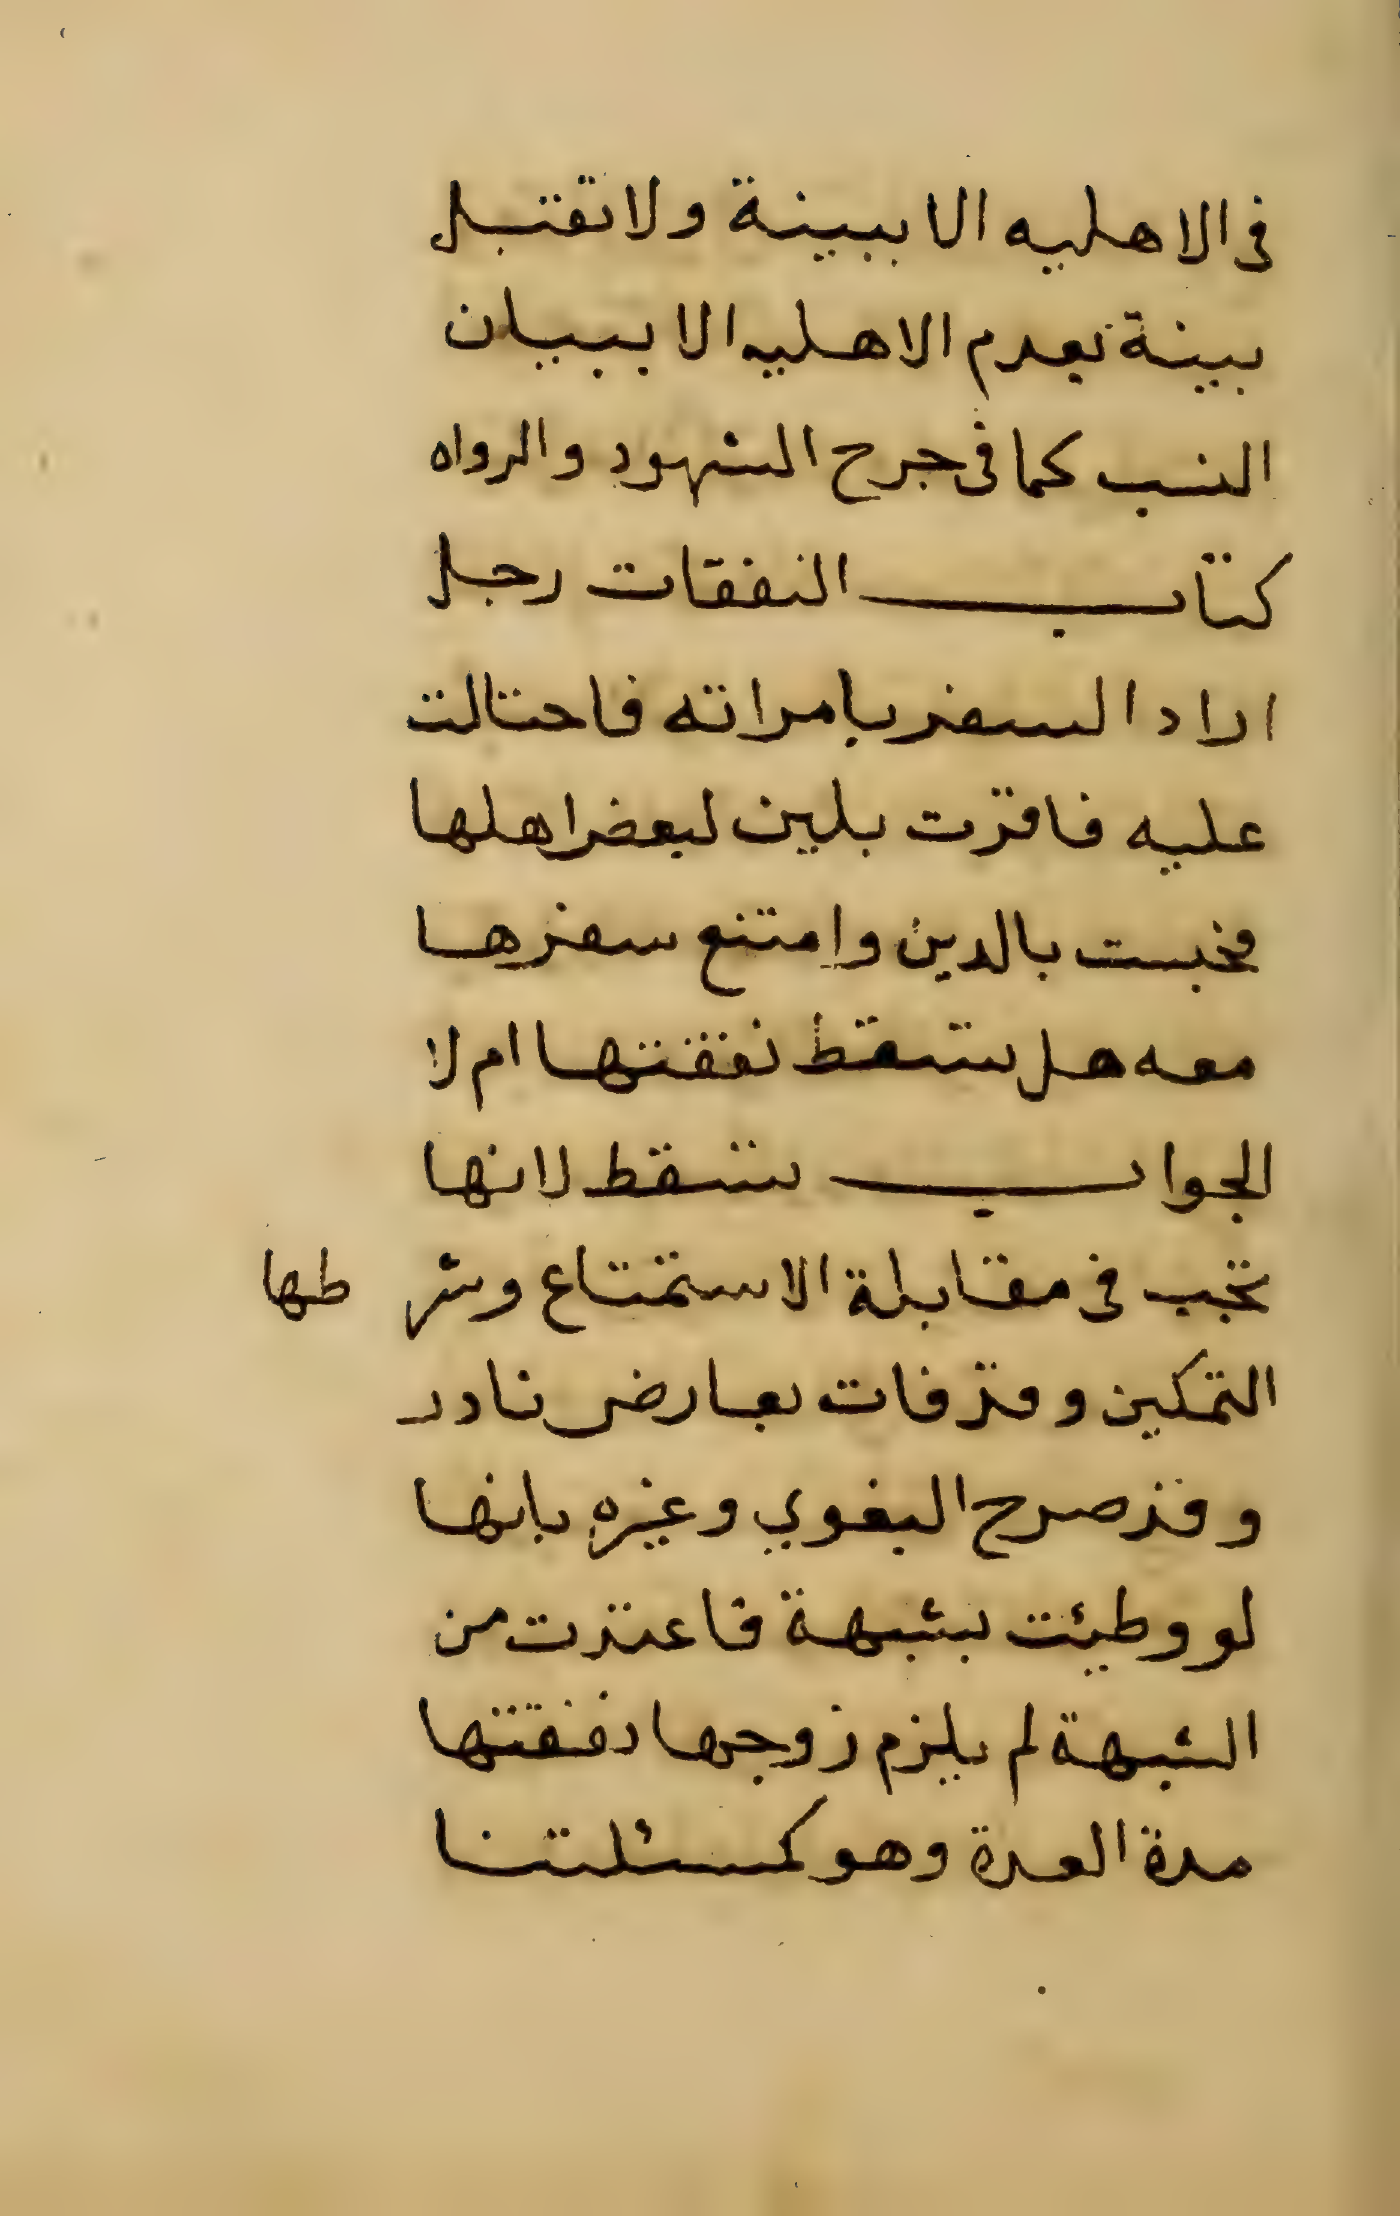 فى الاهليه الا ببينة ولا تقتبل
بينة بعدم الاهليه الا ببيان
النسب كما فى جرح الشهود والرواه
كتاب النفقات رجل
اراد السفر بامراته فاحتالت
عليه فاقرت بلين لبعض اهلها
فحبست بالدين وامتنع سفرها
معه هل تسقط نفقتها ام لا
الجواب تسقط لانها
تجب فى مقابلة الاستمتاع وشر طها
التمكين وقد فات بعارض نادر
وقد صرح البغوي وغيره بانها
لو وطيئت بشبهة فاعتدت من
الشبهة لم يلزم زوجها نفقتها
مدة العدة وهو كمسئلتنا